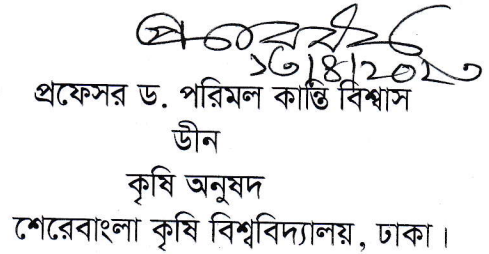 ১৩/৪/২০২৩
প্রফেসর ড. পরিমল কান্তি বিশ্বাস
ডীন
কৃষি অনুষদ
শেরেবাংলা কৃষি বিশ্ববিদ্যালয়, ঢাকা।